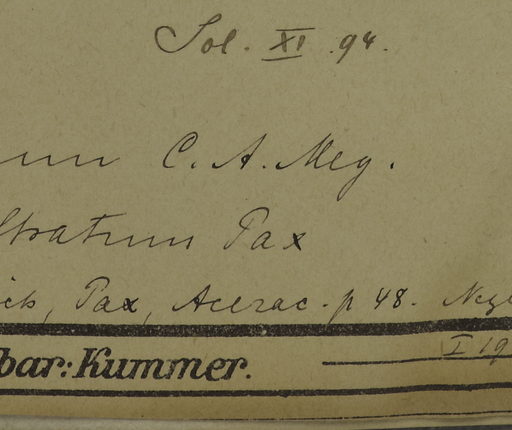 Sol. XI. 94.
um C. A. Mey.
stratum Pax
Pax, Acerac. p 48.
bar: Kummer.
I 19